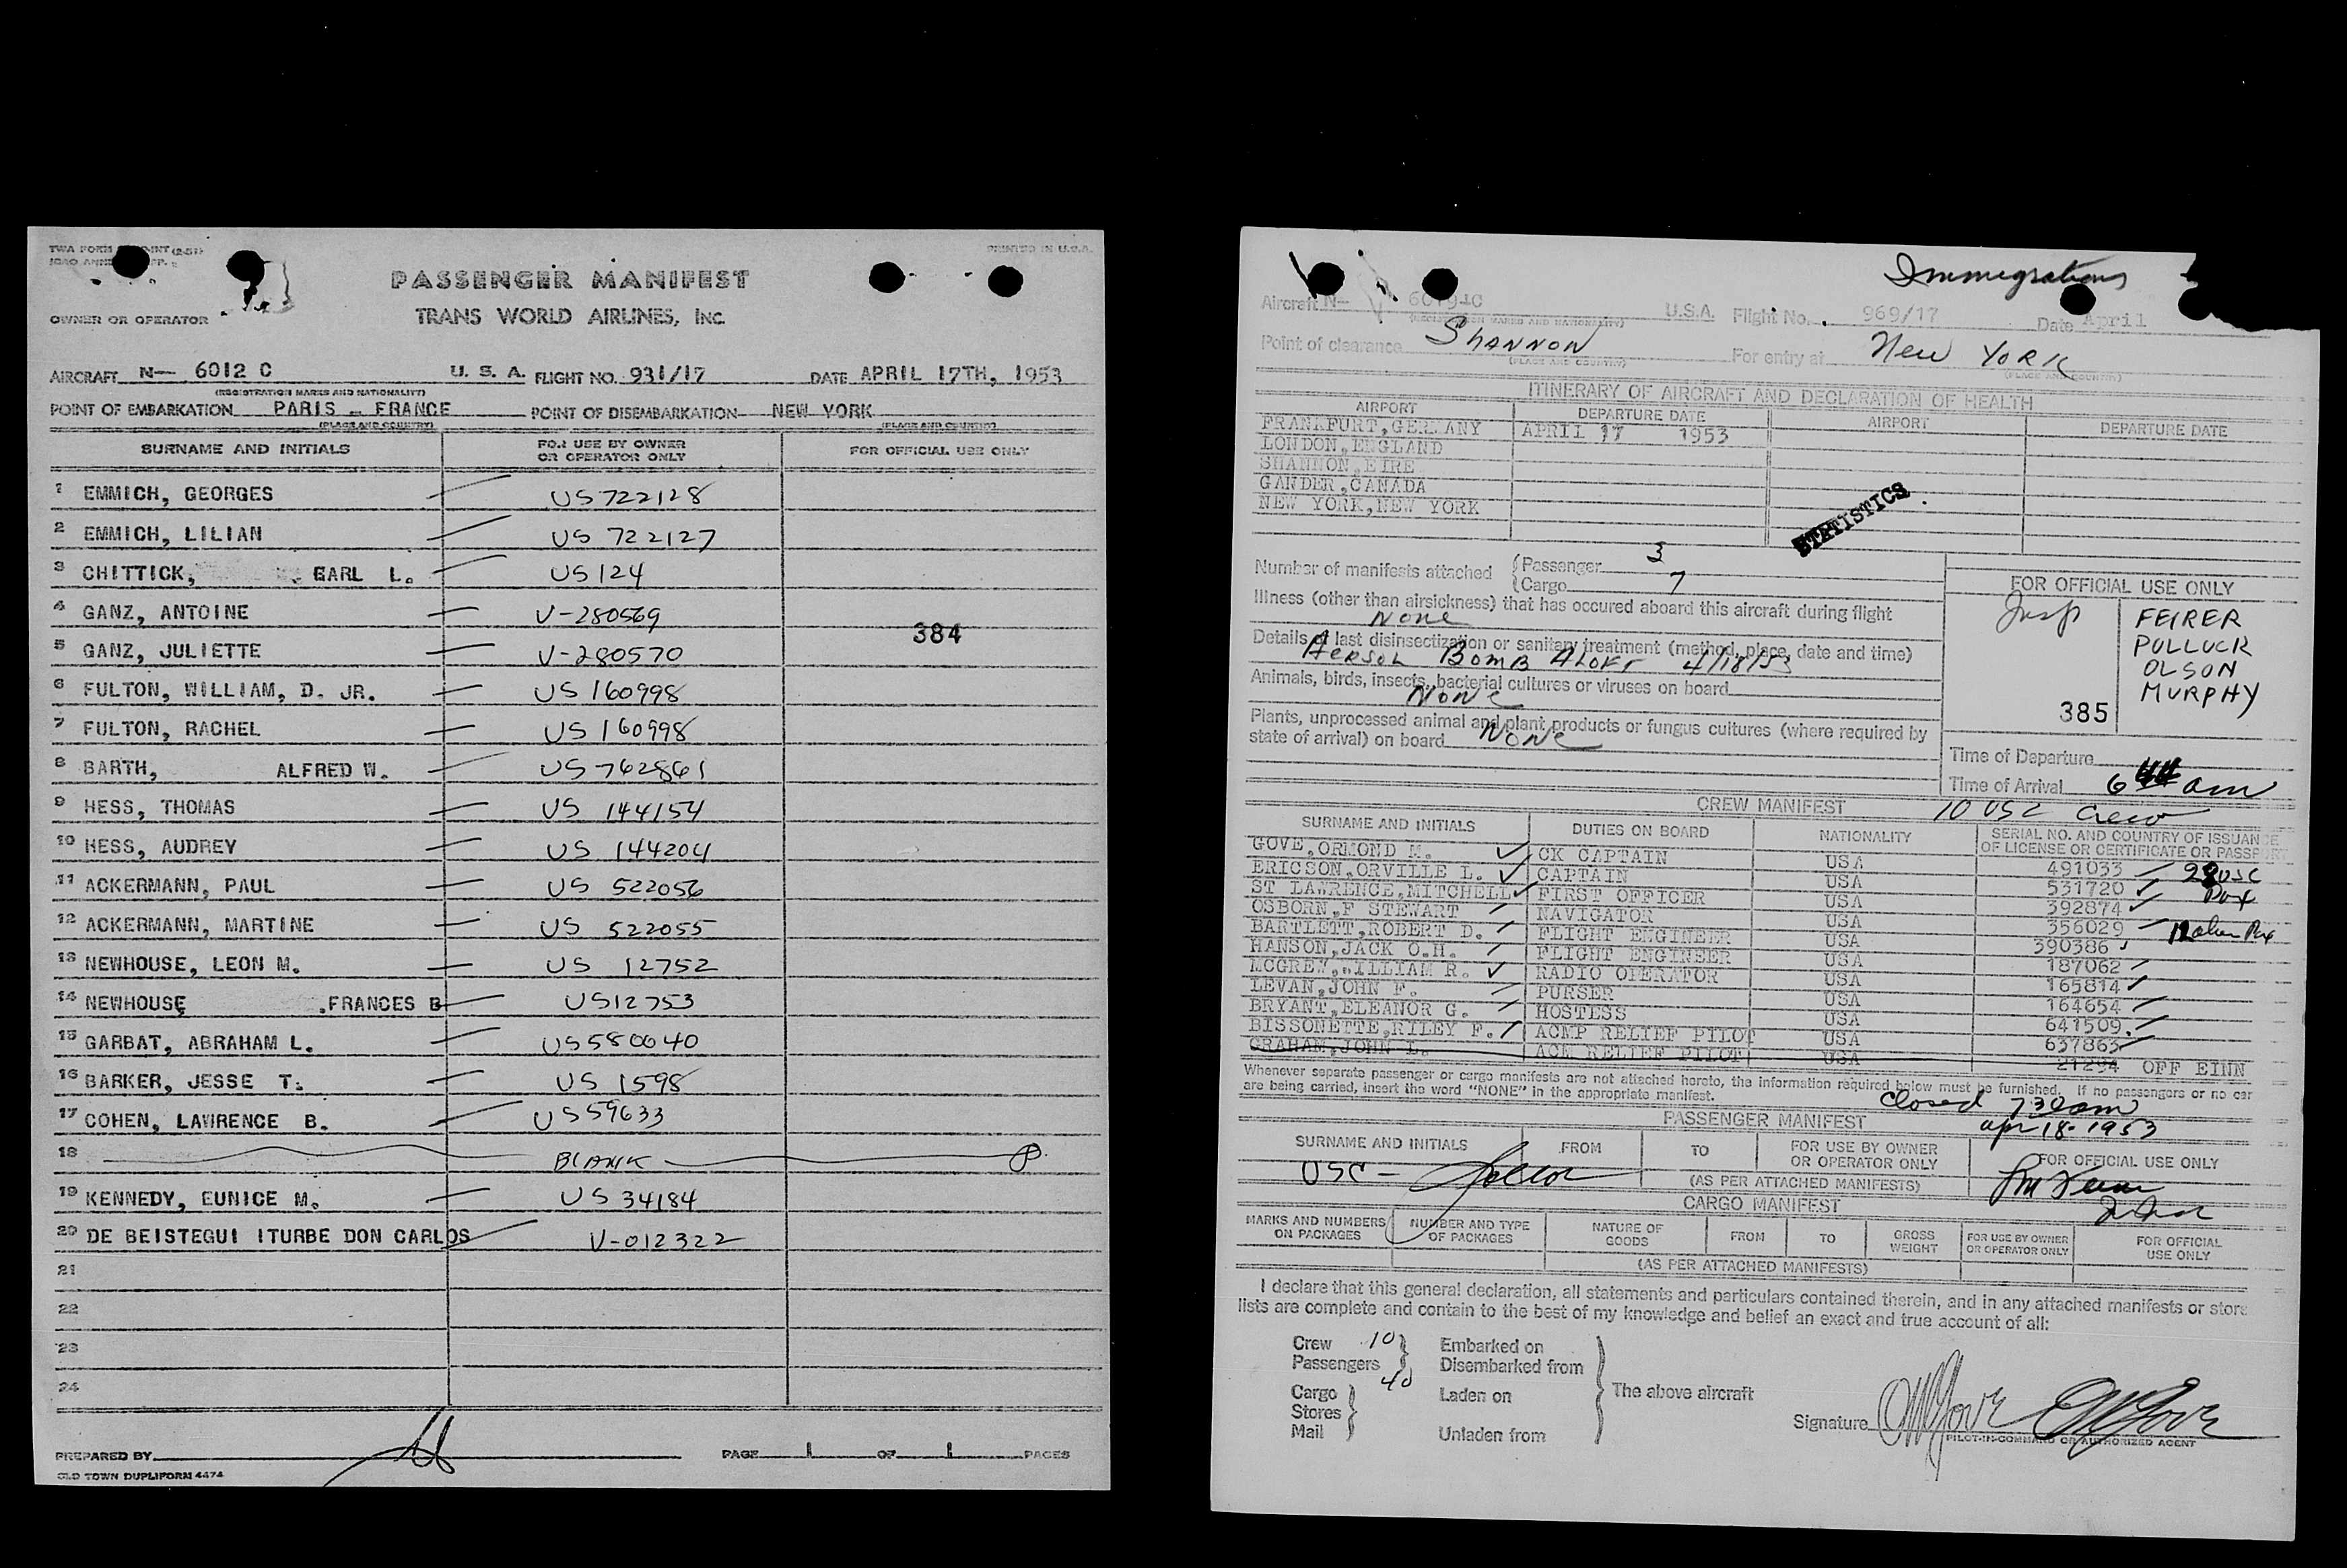 PRINTED IN U.S.A.
PASSENGER MANIFEST
OWNER OR OPERATOR TRANS WORLD AIRLINES, INC.
AIRCRAFT N— 6012 C U. S. A. FLIGHT NO. 931/17 DATE APRIL 17TH, 1953
(REGISTRATION MARKS AND NATIONALITY)
POINT OF EMBARKATION PARIS - FRANCE POINT OF DISEMBARKATION NEW YORK
(PLACE AND COUNTRY) (PLACE AND COUNTRY)
SURNAME AND INITIALS FOR USE BY OWNER OR OPERATOR ONLY FOR OFFICIAL USE ONLY
1 EMMICH, GEORGES US 722128
2 EMMICH, LILIAN US 722127
3 CHITTICK, EARL L. US 124
4 GANZ, ANTOINE V-280569
384
5 GANZ, JULIETTE V-280570
6 FULTON, WILLIAM, D. JR. US 160998
7 FULTON, RACHEL US 160998
8 BARTH, ALFRED W. US 762861
9 HESS, THOMAS US 144154
10 HESS, AUDREY US 144204
11 ACKERMANN, PAUL US 522056
12 ACKERMANN, MARTINE US 522055
13 NEWHOUSE, LEON M. US 12752
14 NEWHOUSE FRANCES B US12753
15 GARBAT, ABRAHAM L. US580040
16 BARKER, JESSE T. US 1598
17 COHEN, LAWRENCE B. US59633
18 BLANK
19 KENNEDY, EUNICE M. US 34184
20 DE BEISTEGUI ITURBE DON CARLOS V-012322
21
22
23
24
PREPARED BY PAGE 1 OF 1 PAGES
OLD TOWN DUPLIFORM 4474
Immigration
Aircraft N— U.S.A. Flight No. 969/17 Date April
(REGISTRATION MARKS AND NATIONALITY)
Point of clearance SHANNON For entry at New YORK
(PLACE AND COUNTRY) (PLACE AND COUNTRY)
ITINERARY OF AIRCRAFT AND DECLARATION OF HEALTH
AIRPORT DEPARTURE DATE AIRPORT DEPARTURE DATE
FRANKFURT,GERMANY APRIL 17 1953
LONDON,ENGLAND
SHANNON,EIRE
GANDER,CANADA
NEW YORK,NEW YORK
STATISTICS
Number of manifests attached (Passenger 3
(Cargo 7
Illness (other than airsickness) that has occured aboard this aircraft during flight
None
Details of last disinsectization or sanitary treatment (method, place, date and time)
Aersol Bomb Aloft 4/18/53
Animals, birds, insects, bacterial cultures or viruses on board
None
Plants, unprocessed animal and plant products or fungus cultures (where required by
state of arrival) on board None
FOR OFFICIAL USE ONLY
Insp FEIRER
POLLUCK
OLSON
MURPHY
385
Time of Departure
Time of Arrival 6 am
CREW MANIFEST 10 USC Crew
SURNAME AND INITIALS DUTIES ON BOARD NATIONALITY SERIAL NO. AND COUNTRY OF ISSUANCE OF LICENSE OR CERTIFICATE OR PASSPORT
GOVE,ORMOND M. CK CAPTAIN USA 491033
ERICSON,ORVILLE L. CAPTAIN USA 531720
ST LAWRENCE,MITCHELL FIRST OFFICER USA 392874
OSBORN,F STEWART NAVIGATOR USA 356029
BARTLETT,ROBERT D. FLIGHT ENGINEER USA 390386
HANSON,JACK O.H. FLIGHT ENGINEER USA 187062
MCGREW,WILLIAM R. RADIO OPERATOR USA 165814
LEVAN,JOHN F. PURSER USA 164654
BRYANT,ELEANOR G. HOSTESS USA 641509.
BISSONETTE,RILEY F. ACMP RELIEF PILOT USA 637863
GRAHAM,JOHN L. ACM RELIEF PILOT USA 21294 OFF EINN
28 USC
Pax
12 alien Pax
Whenever separate passenger or cargo manifests are not attached hereto, the information required below must be furnished. If no passengers or no car
are being carried, insert the word "NONE" in the appropriate manifest.
Closed 730am
PASSENGER MANIFEST apr 18. 1953
SURNAME AND INITIALS FROM TO FOR USE BY OWNER OR OPERATOR ONLY FOR OFFICIAL USE ONLY
USC -
(AS PER ATTACHED MANIFESTS)
CARGO MANIFEST
MARKS AND NUMBERS ON PACKAGES NUMBER AND TYPE OF PACKAGES NATURE OF GOODS FROM TO GROSS WEIGHT FOR USE BY OWNER OR OPERATOR ONLY FOR OFFICIAL USE ONLY
(AS PER ATTACHED MANIFESTS)
I declare that this general declaration, all statements and particulars contained therein, and in any attached manifests or store
lists are complete and contain to the best of my knowledge and belief an exact and true account of all:
Crew 10 Embarked on
Passengers 40 Disembarked from
Cargo Laden on The above aircraft
Stores
Mail Unladen from
Signature
PILOT-IN-COMMAND OR AUTHORIZED AGENT